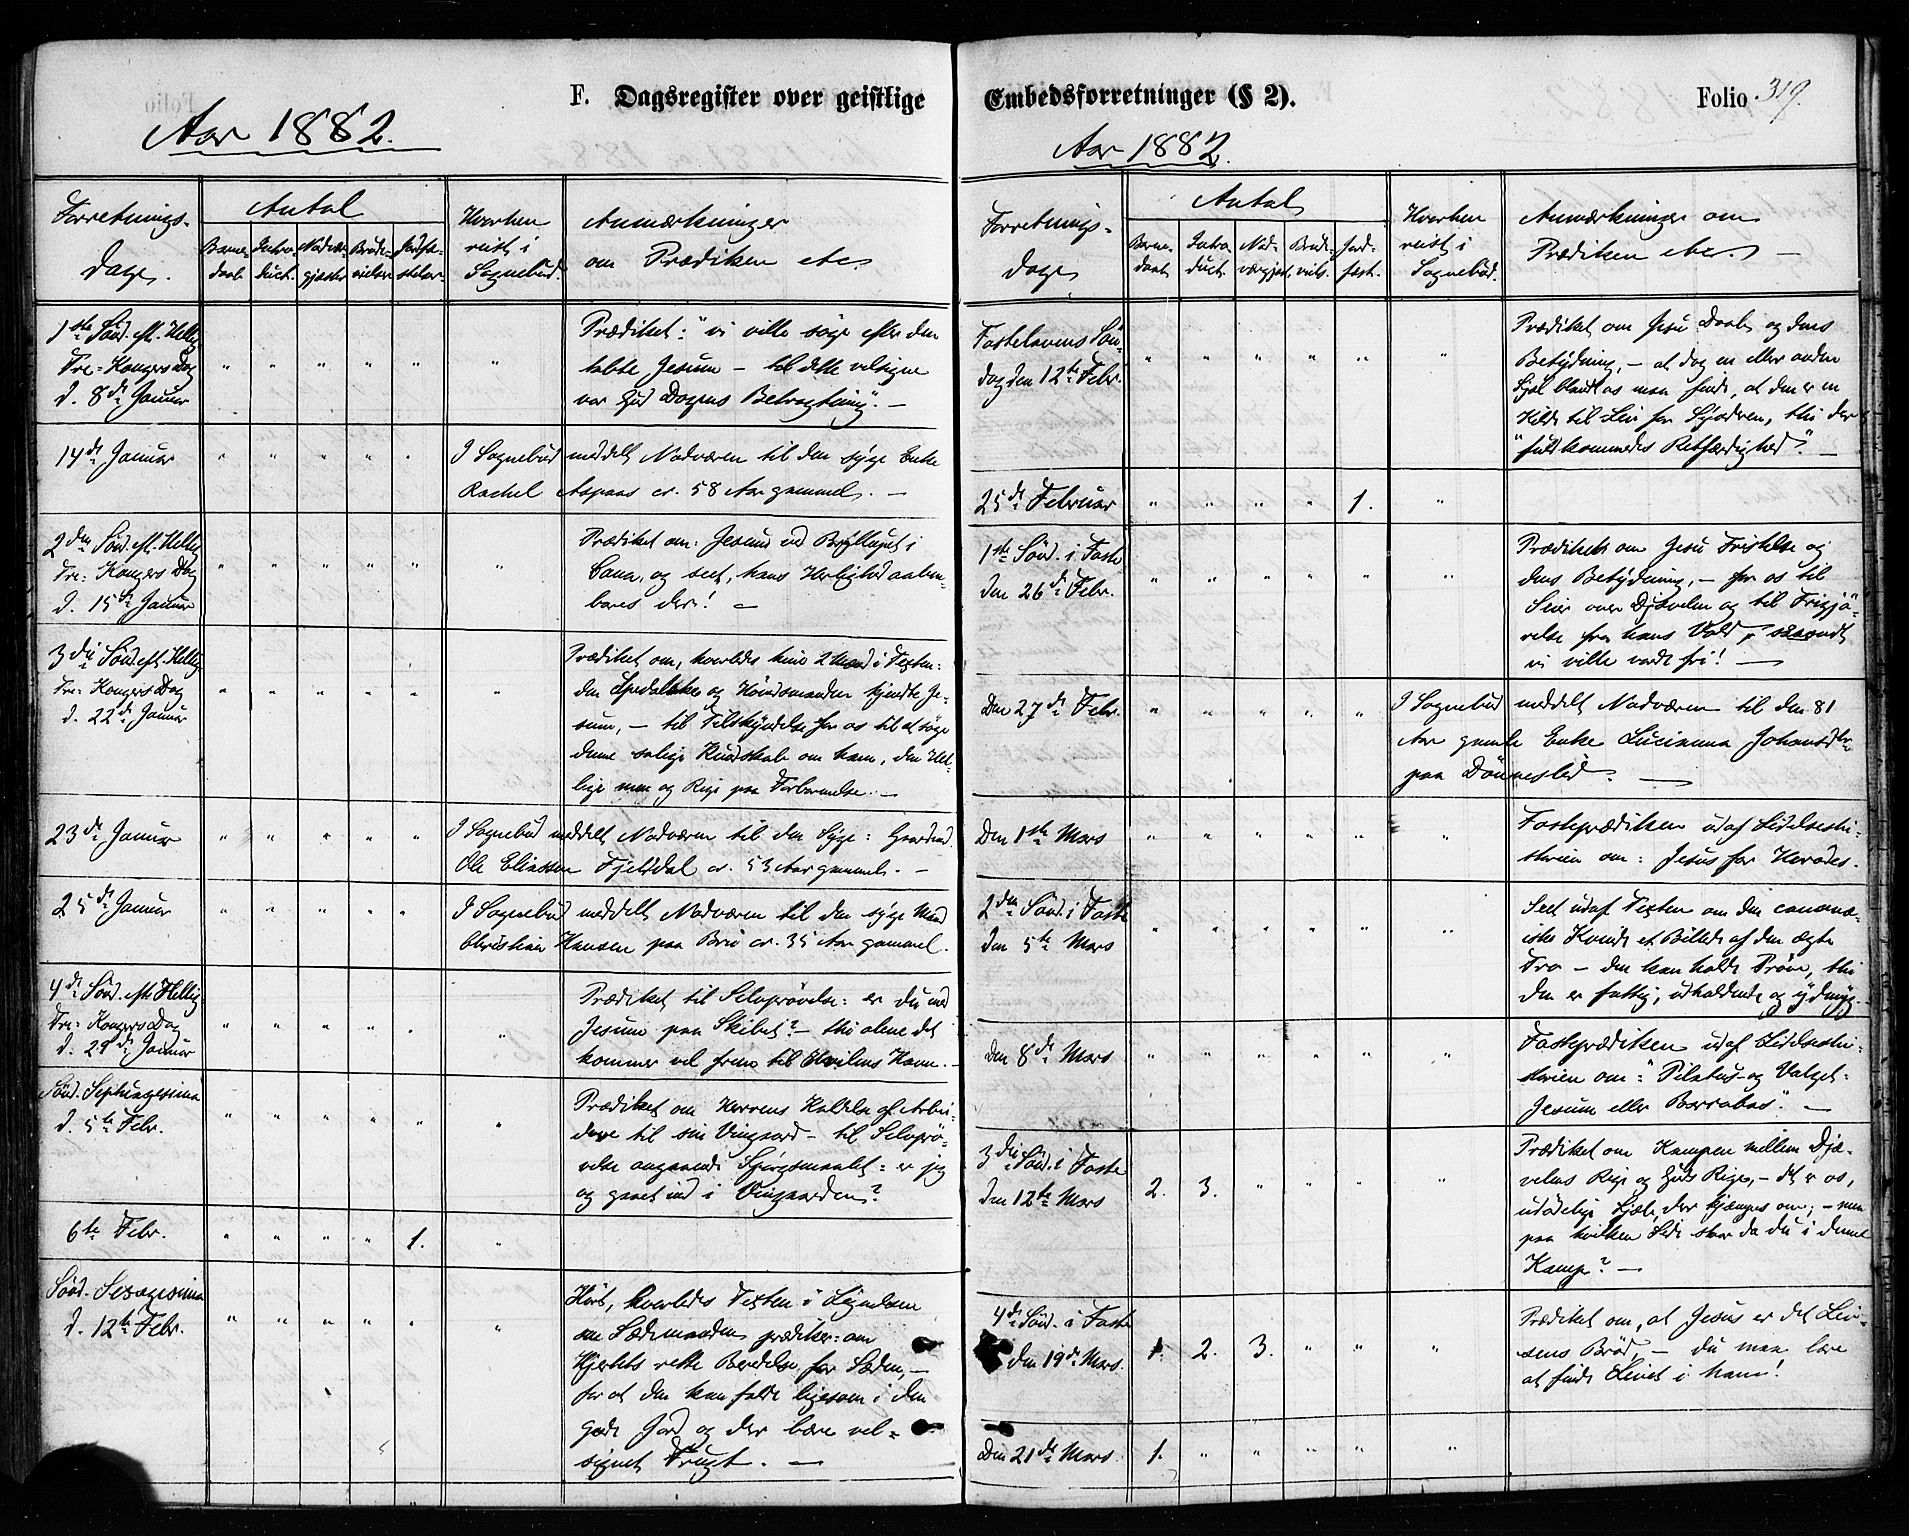 F. Dagsregister over geistlige
Aar 1882.
Forretnings-
dage.
Antal
Barne-
daab.
Intro-
duct.
Brude-
vielser
Hvorhen
reist i
Sognebud.
Anmærkninger
om Prædiken etc.
1ste Sönd. eft. Hellig
Tre-Kongers Dag
d. 8de Januar
" " " " " "
Prædiket: "vi ville söge efter den
tabte Jesum – til dette velsigne
vor Gud Dagens Betragtning". –
14de Januar
" " " " "
I Sognebud meddelt Nadveren til den syge Enke
Rachel Aspaas cr. 58 Aar gammel. –
2den Sönd. eft. Hellig
Tre-Kongers Dag
d. 15de Januar
" " " " " "
Prædiket om: Jesus ved Brylluppet i
Cana, og seet, hans Herlighed aaben-
bares der! –
3die Sönd. eft. Hellig
Tre-Kongers Dag
d. 22de Januar
" " " " " "
Prædiket om, hvorledes hine 2 Mænd i Texten:
den Spedalske og Høvedsmanden kjendte Je-
sum, – til Tilskyndelse for os til at söge
denne salige Kundskab om ham, den Hel-
lige men og Rige paa Forbarmelse. –
23de Januar
" " " " "
I Sognebud meddelt Nadveren til den Syge: Gaardmd.
Ole Eliassen Fjeldal cr. 53 Aar gammel. –
25de Januar
" " " " "
I Sognebud meddelt Nadveren til den syge Mand
Christian Hansen paa Brü cr. 35 Aar gammel.
4de Sönd. eft. Hellig
Tre-Kongers Dag
d. 29de Januar
" " " " " "
Prædiket til Selvprövelse: er du med
Jesum paa Skibet? – thi alene det
kommer vel frem til Hvilens Havn. –
Sönd. Septuagesima
d. 5te Febr.
" " " " " "
Prædiket om Herrens Kaldelse af Arbei-
dere til sin Viingaard – til Selvprö-
velse angaaende Spörgsmaalet: er jeg
og gaaet ind i Viingaarden?
6te Febr.
" " " " 1. "
Sönd. Sexagesima
d. 12te Febr.
" " " " " "
Hört, hvorledes Texten i Lignelsen
om Sædemanden prædiker: om
Hjertets rette Beredelse for Sæden, –
for at den kan falde ligesom i den
gode Jord og der bære vel-
signet Frugt. –
Embedsforretninger (§ 2). Folio 319.
Aar 1882.
Forretnings-
dage
Antal
Barne-
daab.
Intro
duct.
Nad-
vergjest.
Brude-
viels.
Jord-
fæst.
Hvorhen
reist i
Sognebud.
Anmærkninger om
Prædiken etc. –
Fastelavens Sön-
dag den Febr.
" " " " " "
Prædiket om Jesu Daab og dens
Betydning, – at dog en eller anden
Sjæl blandt os maa finde, at den er en
Kilde til Liv for Synderen, thi der
"fuldkommedes Retfærdighed". –
25de Februar
" " " " 1. "
1ste Sönd. i Faste
den 26de Febr.
" " " " " "
Prædiket om Jesu Fristelse og
dens Betydning, – for os til
Seier over Djævelen og til Frigjö-
relse fra hans Vold,
vi ville vorde fri! –
Den 27de Febr.
" " " " "
I Sognebud meddelt Nadveren til den 81
Aar gamle Enke Lucianna Johansdtr.
paa Dönnesled. –
Den 1ste Mars
" " " " " "
Fasteprædiken udaf Lidelseshi-
storien om: Jesus for Herodes.
2den Sönd. i Faste
den 5te Mars
" " " " " "
Seet udaf Texten om den cananæ-
iske Kvinde et Billede af den ægte
Tro – den kan holde Pröve, thi
den er fattig, udholdende og ydmyg.
den 8de Mars
" " " " " "
Fasteprædiken udaf Lidelseshi-
storien om: "Pilatus og Valget:
Jesum eller Barrabas". –
3die Sönd. i Faste
den 12te Mars
2. 3. " " " "
Prædiket om Kampen mellem Djæ-
velens Rige og Guds Rige, – det er os,
udödelige Sjæle, der kjæmpes om; – men
paa hvilken Side staar da du i denne
Kamp? –
4de Sönd. i Faste
den 19de Mars.
1. 2. 3. " " "
Prædiket om, at Jesus er det Liv-
sens Bröd, – du maa lære
at finde Livet i ham!
Den 21de Mars.
1. " " " " "